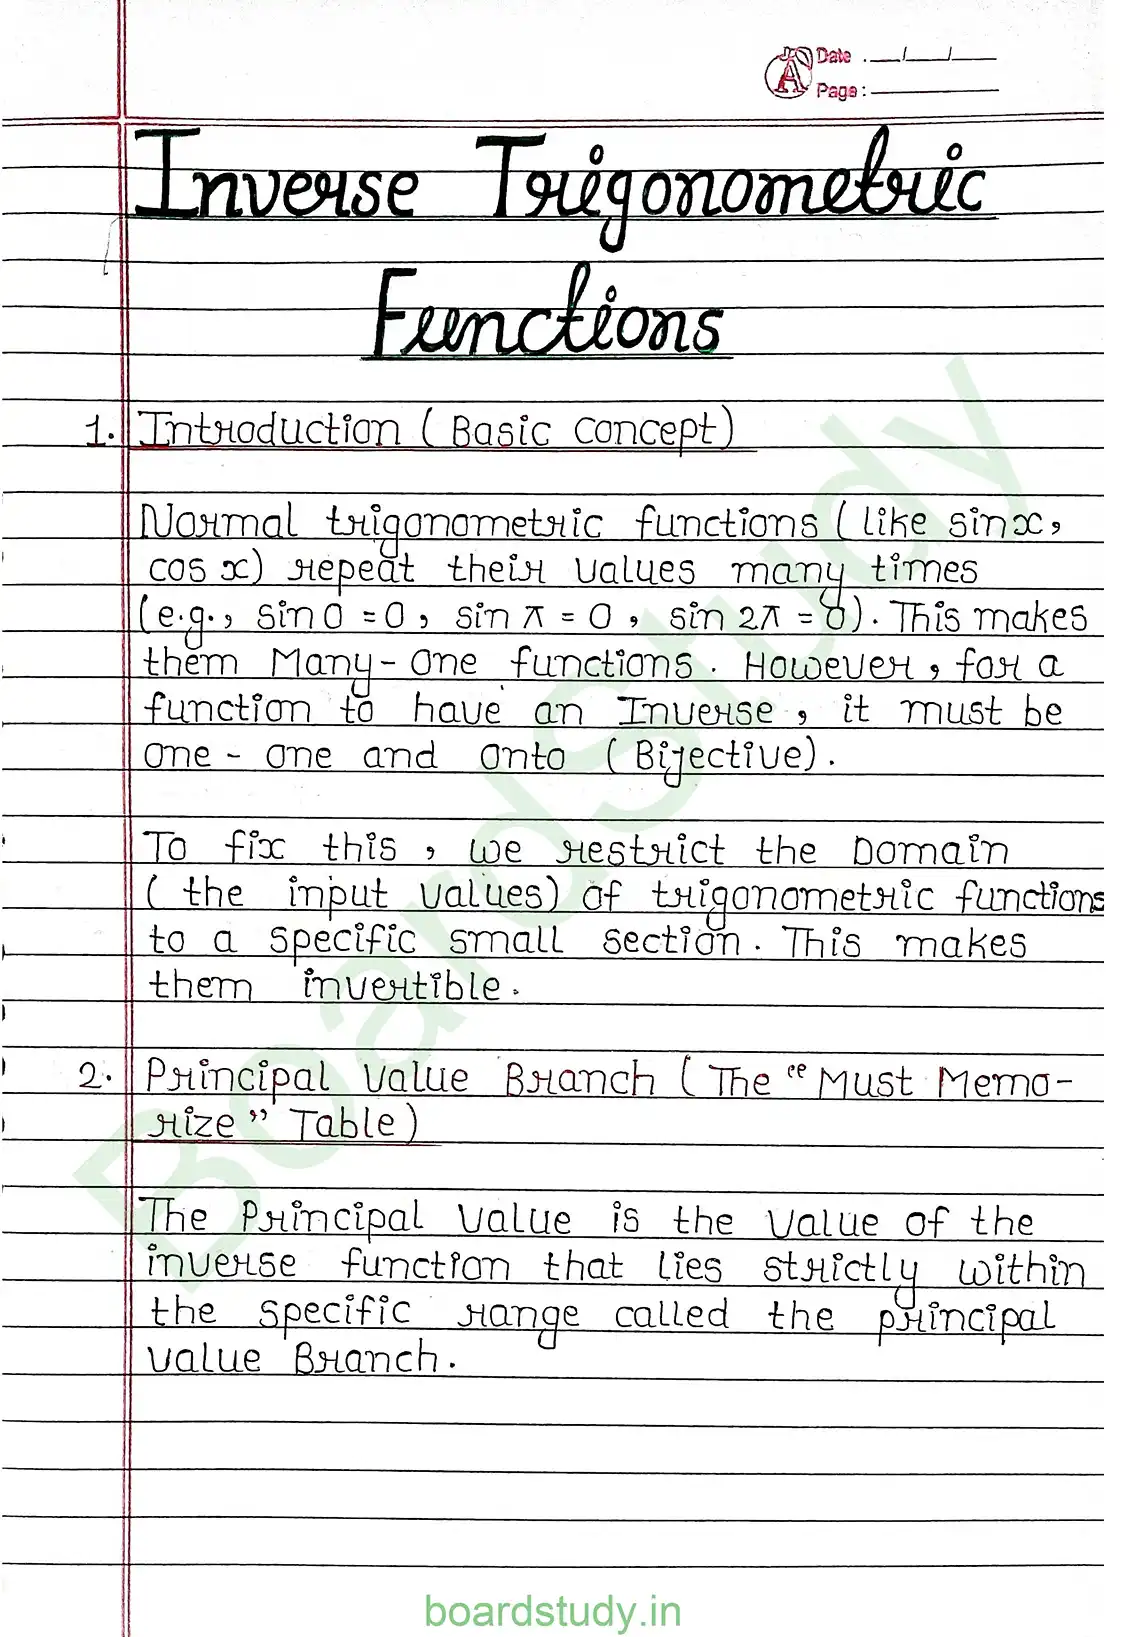 Date : __/__/__
Page :
Inverse Trigonometric
Functions
1. Introduction (Basic Concept)
Normal trigonometric functions (like sin x,
cos x) repeat their values many times
(e.g., sin 0 = 0, sin π = 0, sin 2π = 0). This makes
them Many-One functions. However, for a
function to have an Inverse, it must be
one-one and onto (Bijective).
To fix this, we restrict the Domain
(the input values) of trigonometric functions
to a specific small section. This makes
them invertible.
2. Principal Value Branch (The "Must Memo-
rize" Table)
The Principal Value is the value of the
inverse function that lies strictly within
the specific range called the principal
Value Branch.
BoardStudy
boardstudy.in